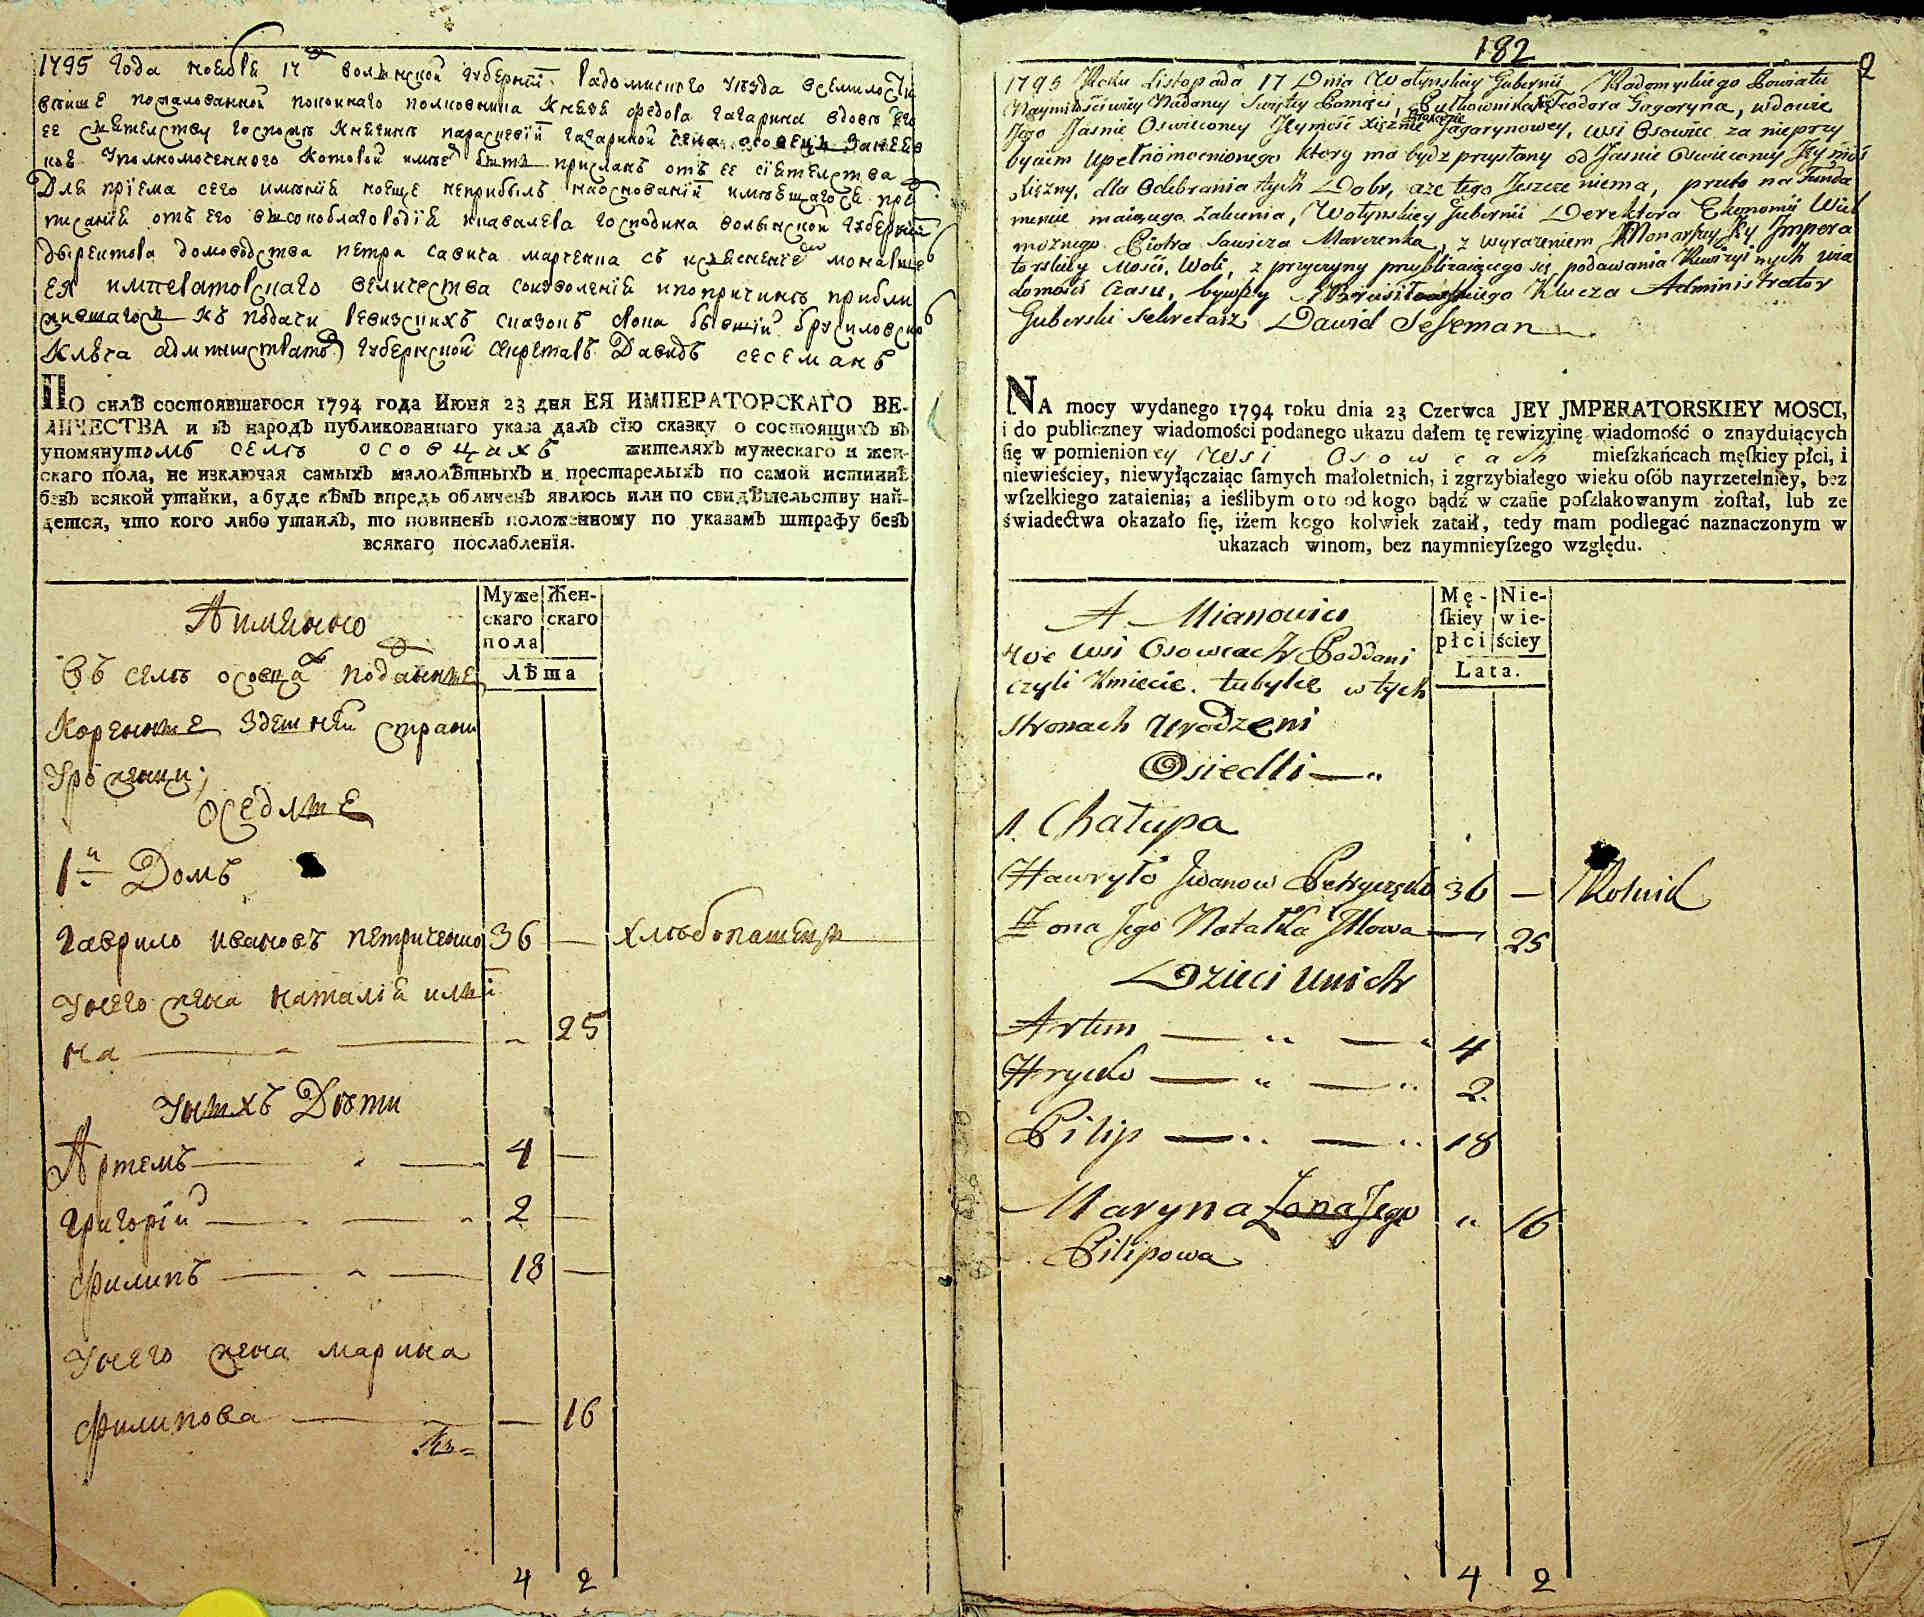 1795 года ноября 17 волынской губернїи Радомислского уезда всемилости
выше пожалованной покойнаго полковника князя федора гагарина вдове его
ее сиятелству госпоже княгине парасковїи гагариной села осовецъ за неѣе
полномоченного которой имѣетъ быть присланъ отъ ее сїятелства
Для прїема сего имѣнїя ноеще неприбылъ наосновании имѣющагося пред
писанїя отъ его высокоблагородїя кавалера господина волынской губернїи
дыректора домоводства петра савича марченка съ изъясненїемъ монаршей
ея императорскаго величества соизволенїя ипопричине прибли
жившагося къ подачи ревизскихъ сказокъ бывшїй брусиловского
Ключа администраторъ губернской секретарь Давидъ сесеманъ
ПО силѣ состоявшагося 1794 года Июня 23 дня ЕЯ ИМПЕРАТОРСКАГО ВЕ-
ЛИЧЕСТВА и въ народъ публикованнаго указа далъ сїю сказку о состоящихъ въ
упомянутомъ селѣ осовцахъ жителяхъ мужескаго и жен-
скаго пола, не изключая самыхъ малолѣтныхъ и престарелыхъ по самой истиннѣ
безъ всякой утайки, а буде кѣмъ впредь обличенъ явлюсь или по свидѣтельству най-
дется, что кого либо утаилъ, то повиненъ положенному по указамъ штрафу безъ
всякаго послабленїя.
Аимянно
Муже
скаго
пола
Жен-
скаго
Лѣта
Въ селѣ осовцахъ подданные
Коренные здешней страны
Уроженцы;
оседлые
1й Домъ
Гаврило ивановъ петриченко 36 — хлѣбопашецъ
Унего жена наталїя ильи
на — 25
Унихъ Дѣти
Артемъ — 4 —
Григорїй — 2 —
Филипъ — 18 —
Унего жена марина
филипова — 16
4 2
182
2
1795 Roku Listopada 17 Dnia Wołynskiey Gubernii Radomyslkiego Powiatu
Naymiłościwiey Nadaney Swiętey Pamięci, Pułkownika Xcia Teodora Gagaryna, wdowie
Jego Jaśnie Oswieconey Jeymość Xiężnie Gagarynowey, wsi Osowiec za nieprzy
byciem Upełnomocnionego ktory ma bydź przysłany od Jaśnie Oswieconey Jeymość
Xiężny, dla Odebrania tych Dobr, aże tego Jeszcze niema, przeto na Funda
mencie maiącego Zalecenia, Wołynskiey Gubernii Derektora Ekonomii Wiel
możnego Piotra Sawicza Marczenka, z wyrażeniem Monarszey Jey Impera
torskiey Mości Woli, z przyczyny przybliżaiącego się podawania Rewizyinych wia
domości Czasu, bywszy Brusiłowskiego Klucza Administrator
Guberski Sekretarz Dawid Seseman
NA mocy wydanego 1794 roku dnia 23 Czerwca JEY JMPERATORSKIEY MOSCI,
i do publiczney wiadomości podanego ukazu dałem tę rewizyinę wiadomość o znayduiących
ſię w pomienioney wsi Osowcach mieſzkańcach męſkiey płci, i
niewieściey, niewyłączaiąc ſamych małoletnich, i zgrzybiałego wieku oſób nayrzetelniey, bez
wſzelkiego zataienia; a ieślibym oto od kogo bądź w czaſie poſzlakowanym zoſtał, lub ze
świadectwa okazało ſię, iżem kogo kolwiek zataił, tedy mam podlegać naznaczonym w
ukazach winom, bez naymnieyſzego względu.
A Mianowicie
Mę-
ſkiey
płci
Nie-
wie-
ściey
Lata.
we wsi Osowcach Poddani
czyli Kmiecie. tubylce w tych
stronach Urodzeni
Osiedli
1. Chałupa
Hawryło Jwanow Petryczenko 36 — Rolnik
Żona Jego Natalka Jllowa — 25
Dzieci Unich
Artem — 4
Hrycko — 2.
Pilip — 18
Maryna Żona Jego 16
Pilipowa
4 2